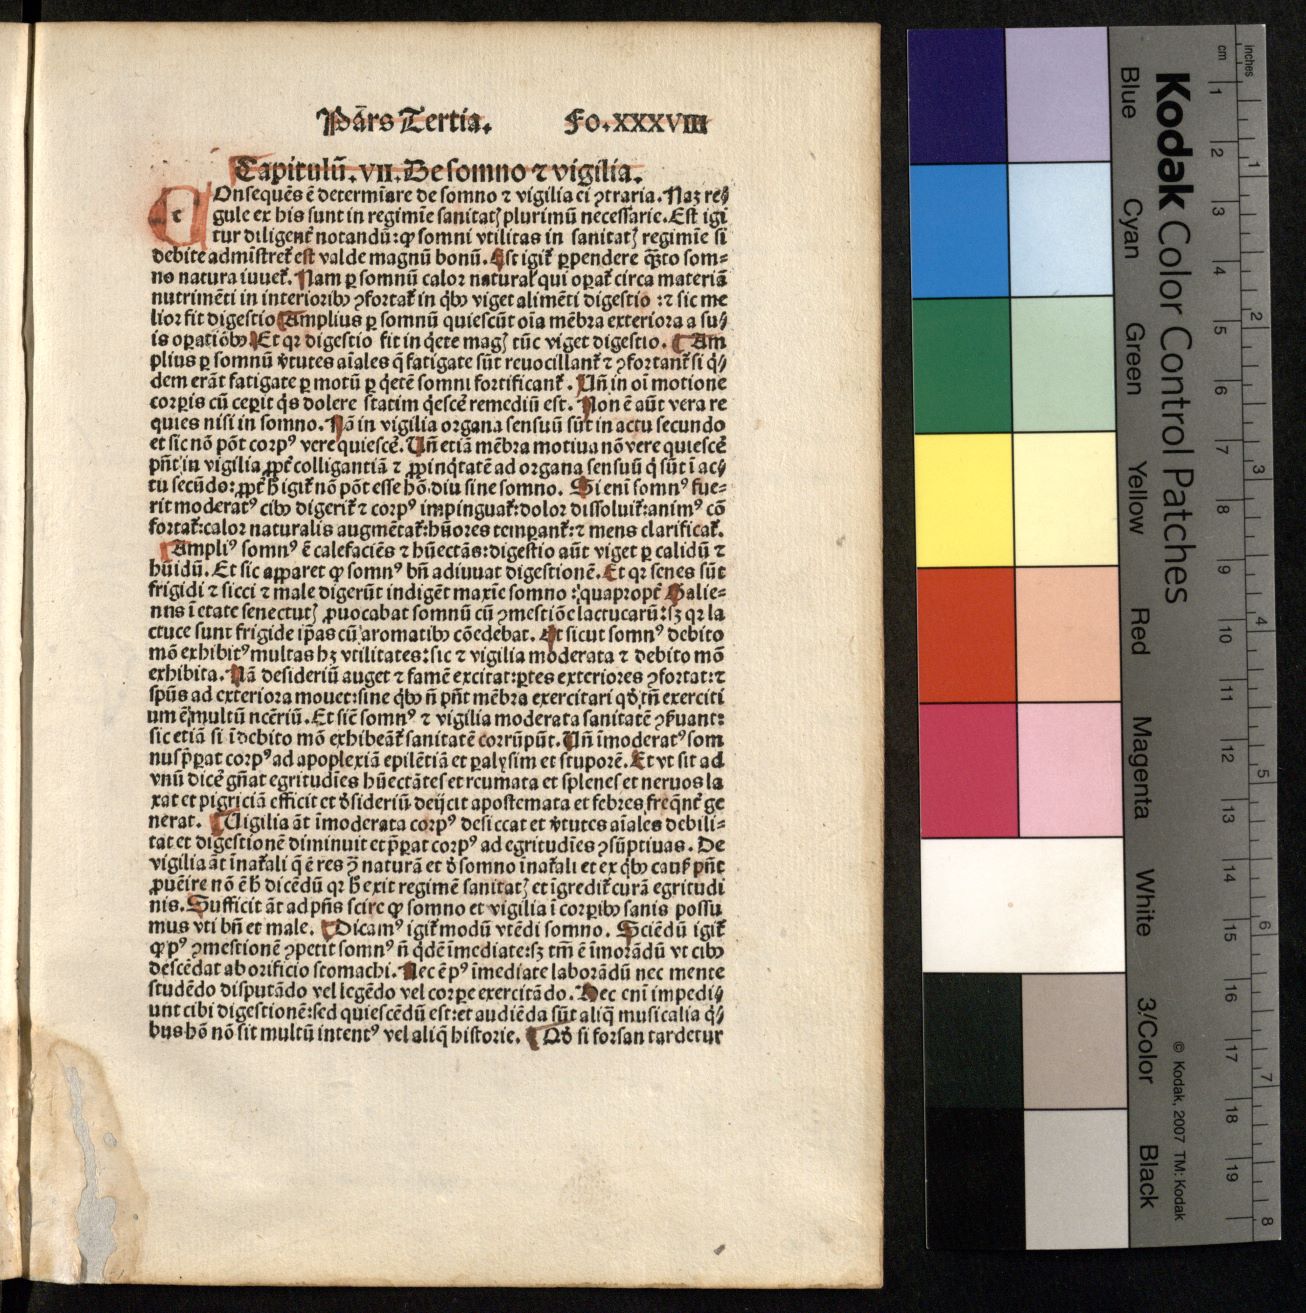 Pārs Tertia. Fo. XXXVIII
Capitulū. VII. De somno ⁊ vigilia.
COnsequēs ē determīare de somno ⁊ vigilia ei ꝯtraria. Naꝫ re⸗
gule ex his sunt in regimīe sanitatꝭ plurimū necessarie. Est igi
tur diligent᷑ notandū: ꝙ somni vtilitas in sanitatꝭ regimīe si
debite admīstret᷑ est valde magnū bonū. Est igit᷑ ꝑpendere quāto som⸗
no natura iuuet᷑. Nam ꝑ somnū calor natural᷑ qui opat᷑ circa materiā
nutrimēti in interioribꝰ ꝯfortat᷑ in q̇bꝰ viget alimēti digestio : ⁊ sic me
lior fit digestio Amplius ꝑ somnū quiescūt oīa mēbra exteriora a su⸗
is oꝑatiōbꝰ Et qꝛ digestio fit in q̇ete magꝭ tūc viget digestio. Am
plius ꝑ somnū v̓tutes aīales q̄ fatigate sūt reuocillant᷑ ⁊ ꝯfortant᷑ si q̇⸗
dem erāt fatigate ꝑ motū ꝑ q̇etē somni fortificant᷑. Vñ in oī motione
corpis cū ceꝑit q̇s dolere statim q̇escē remediū est. Non ē aūt vera re
quies nisi in somno. Nā in vigilia organa sensuū sūt in actu secundo
et sic nō pōt corpꝰ vere quiescē. Vñ etiā mēbra motiua nō vere quiescē
pñt in vigilia ꝓpt᷑ colligantiā ⁊ ꝓpinq̇tatē ad organa sensuū q̇ sūt ī ac⸗
tu secūdo: ꝓpt᷑ h̄ igit᷑ nō pōt esse hō diu sine somno. Si enī somnꝰ fue⸗
rit moderatꝰ cibꝰ digerit᷑ ⁊ corpꝰ impinguat᷑: dolor dissoluit᷑: animꝰ cō
fortat᷑: calor naturalis augmētat᷑: hūores tempant᷑: ⁊ mens clarificat᷑.
Ampliꝰ somnꝰ ē calefaciēs ⁊ hūectās: digestio aūt viget ꝑ calidū ⁊
hūidū. Et sic apparet ꝙ somnꝰ bñ adiuuat digestionē. Et qꝛ senes sūt
frigidi ⁊ sicci ⁊ male digerūt indigēt maxīe somno : quapropt᷑ Galie⸗
nns ī etate senectutꝭ ꝓuocabat somnū cū ꝯmestiōe lactucarū: sꝫ qꝛ la
ctuce sunt frigide ip̄as cū aromatibꝰ cōedebat. Et sicut somnꝰ debito
mō exhibitꝰ multas hꝫ vtilitates: sic ⁊ vigilia moderata ⁊ debito mō
exhibita. Nā desideriū auget ⁊ famē excitat: ꝑtes exteriores ꝯfortat: ⁊
spūs ad exteriora mouet: sine q̇bꝰ ñ pñt mēbra exercitari qđ tñ exerciti
um ē multū ncēriū. Et sic̄ somnꝰ ⁊ vigilia moderata sanitatē ꝯẜuant:
sic etiā si īdebito mō exhibeāt᷑ sanitatē corrūpūt. Vñ īmoderatꝰ som
nus p̄parat corpꝰ ad apoplexiā epilētiā et ꝑalysim et stuporē. Et vt sit ad
vnū dicē gñat egritudīes hūectātes et reumata et splenes et neruos la
xat et pigriciā efficit et desideriū deijcit apostemata et febres freq̄nt᷑ ge
nerat. Vigilia āt īmoderata corpꝰ desiccat et v̓tutes aīales debili⸗
tat et digestionē diminuit et p̄parat corpꝰ ad egritudīes ꝯsūptiuas. De
vigilia āt īnat᷑ali q̄ ē res ꝯ̄ naturā et đ somno īnat᷑ali et ex q̇bꝰ causꝭ pñt
ꝓuēire nō ē h̄ dicēdū qꝛ h̄ exit regimē sanitatꝭ et īgredit᷑ curā egritudi
nis. Sufficit āt ad pñs scire ꝙ somno et vigilia ī corpibꝰ sanis possu
mus vti bñ et male. Dicamꝰ igit᷑ modū vtēdi somno. Sciēdū igit᷑
ꝙ pꝰ ꝯmestionē ꝯpetit somnꝰ ñ q̇dē īmediate: sꝫ tm̄ ē īmorādū vt cibꝰ
descēdat ab orificio stomachi. Nec ē pꝰ īmediate laborādū nec mente
studēdo disputādo vel legēdo vel corpe exercitādo. Hec enī impedi⸗
unt cibi digestionē: sed quiescēdū est: et audiēda sūt aliq̄ musicalia q̇⸗
bus hō nō sit multū intentꝰ vel aliq̄ historie. Qđ si forsan tardetur
Kodak Color Control Patches
Blue
Cyan
Green
Yellow
Red
Magenta
White
3/Color
Black
© Kodak, 2007 TM: Kodak
cm 1 2 3 4 5 6 7 8 9 10 11 12 13 14 15 16 17 18 19
inches 1 2 3 4 5 6 7 8